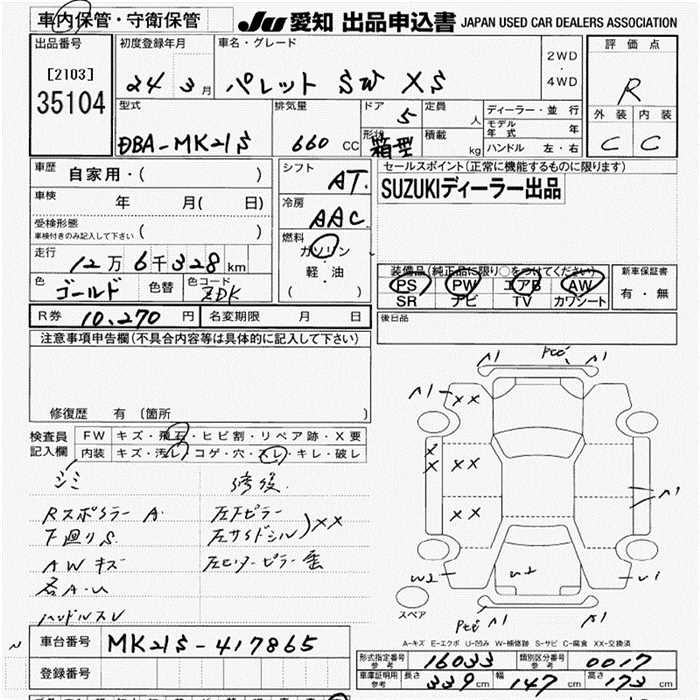 車内保管・守衛保管
JU 愛知 出品申込書 JAPAN USED CAR DEALERS ASSOCIATION
出品番号 初度登録年月 車名・グレード 評価点
[2103] 24 3月 パレット SW XS 2WD・4WD R
35104
型式 排気量 ドア 5 定員 人 ディーラー・並行 外装 内装
モデル年式 年
DBA-MK21S 660 CC 形状 箱型 積載 kg ハンドル 左・右 C C
車歴 自家用・( ) シフト AT. セールスポイント(正常に機能するものに限ります)
SUZUKIディーラー出品
車検 年 月( 日) 冷房 AAC
受検形態 ( )
車検付きのみ記入して下さい
走行 12万6千328km 燃料 ガソリン 軽・油 ( )
装備品(純正品に限り○をつけてください) 新車保証書
色 ゴールド 色替 色コード ZDK PS PW エアB AW 有・無
SR ナビ TV カワシート
R券 10,270円 名変期限 月 日 後日品
注意事項申告欄(不具合内容等は具体的に記入して下さい)
修復歴 有 (箇所 )
検査員記入欄 FW キズ・飛石・ヒビ割・リペア跡・X要
内装 キズ・汚レ・コゲ・穴・スレ・キレ・破レ
シミ 修復
Rスポイラー A. 左Fピラー
下廻りS. 左サイドシル XX
AWキズ 左センターピラー
各A・U
ハンドルスレ
A1 A1
A1 XX
X
X XX
XX A1
W2 U2 U1
A1 A1
スペア
A-キズ E-エクボ U-凹み W-補修跡 S-サビ C-腐食 XX-交換済
車台番号 MK21S-417865
形式指定番号 参考 16033 類別区分番号 参考 0017
登録番号 車庫証明用 参考 長さ 339cm 幅 147cm 高さ 173cm